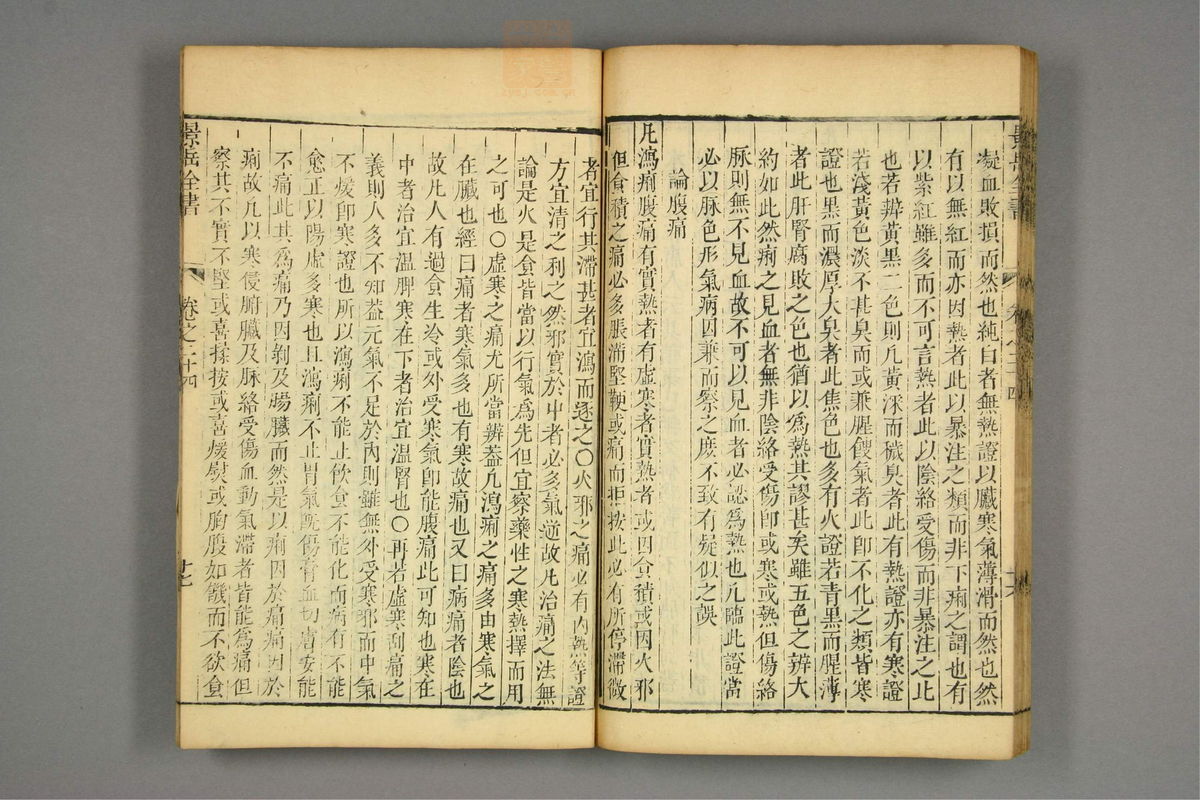 凝血敗損而然也純白者無熱證以臟寒氣薄滑而然也然
有以無紅而亦因熱者此以暴注之類而非下痢之謂也有
以紫紅雖多而不可言熱者此以陰絡受傷而非暴注之比
也若辨黃黑二色則凡黃深而穢臭者此有熱證亦有寒證
若淺黃色淡不甚臭而或兼腥餿氣者此即不化之類皆寒
證也黑而濃厚大臭者此焦色也多有火證若青黑而腥薄
者此肝腎腐敗之色也猶以為熱其謬甚矣雖五色之辨大
約如此然痢之見血者無非陰絡受傷即或寒或熱但傷絡
脉則無不見血故不可以見血者必認為熱也凡臨此證當
必以脉色形氣病因兼而察之庶不致有疑似之誤
論腹痛
凡瀉痢腹痛有實熱者有虛寒者實熱者或因食積或因火邪
但食積之痛必多脹滿堅鞕或痛而拒按此必有所停滯微
者宜行其滯甚者宜瀉而逐之〇火邪之痛必有内熱等證
方宜清之利之然邪實於中者必多氣逆故凡治痛之法無
論是火是食皆當以行氣為先但宜察藥性之寒熱擇而用
之可也〇虛寒之痛尤所當辨葢凡瀉痢之痛多由寒氣之
在臟也經曰痛者寒氣多也有寒故痛也又曰病痛者陰也
故凡人有過食生冷或外受寒氣即能腹痛此可知也寒在
中者治宜溫脾寒在下者治宜溫腎也〇再若虛寒刮痛之
義則人多不知葢元氣不足於内則雖無外受寒邪而中氣
不煖即寒證也所以瀉痢不能止飲食不能化而病有不能
愈正以陽虛多寒也且瀉痢不止胃氣既傷膏血切害安能
不痛此其為痛乃因剝及腸臟而然是以痢因於痛痛因於
痢故凡以寒侵腑臟及脉絡受傷血動氣滯者皆能為痛但
察其不實不堅或喜揉按或喜煖熨或胸腹如饑而不欲食
景岳全書
卷之二十四
十七